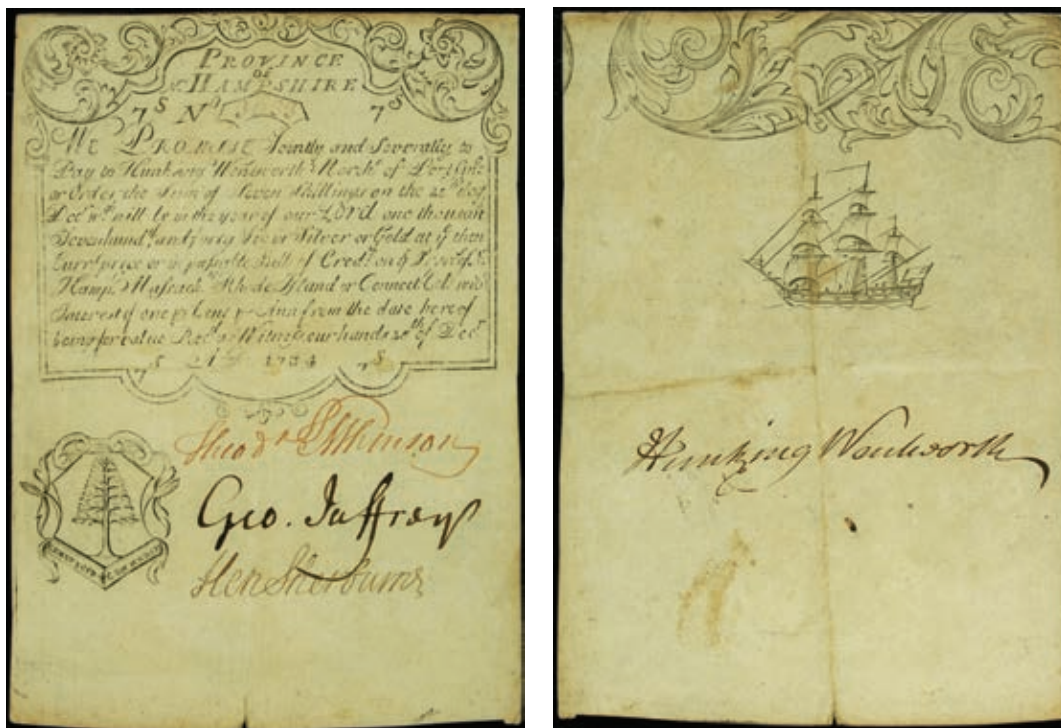 PROVINCE
OF
N HAMPSHIRE
7S No 7S
WE PROMISE Jointly and Severally to
Pay to Hunking Wentworth March' of Ports
or Order the Sum of Seven Shillings on the day
Dec will be in the year of our LORD one thousan
Sevenhund and forty Silver or Gold at ye then
Curr price or in passable Bill of Cred on
Hamp Massach Rhode Island or Connect Col
Interest of one p Cent p Ann from the date hereof
being for value Rec as Witness our hands 20th of Decr
7S 1734 7S
Theodr Atkinson
Geo. Jaffrey
Hen Sherburne
Hunking Wentworth